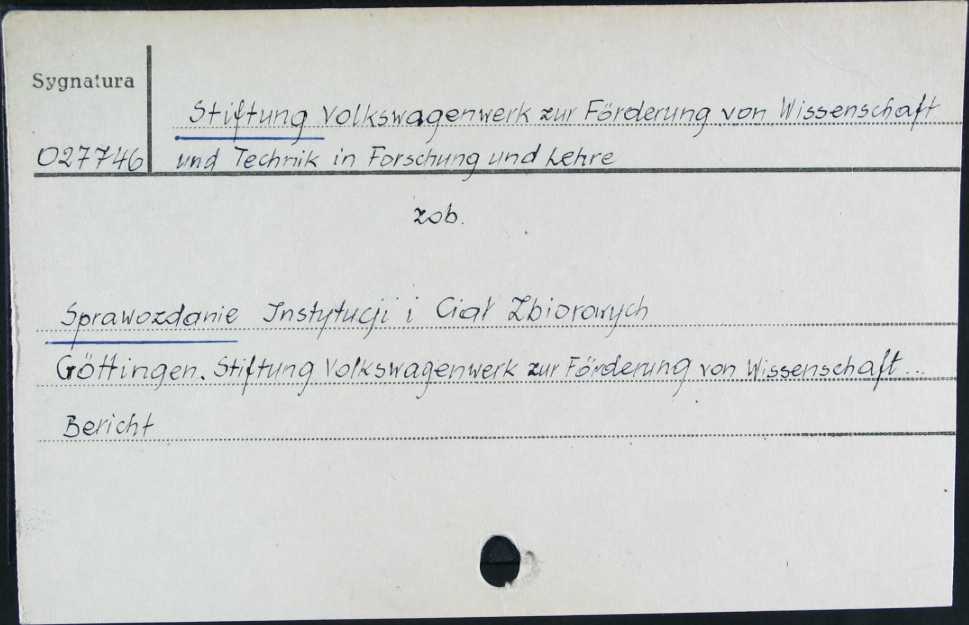 Sygnatura
Stiftung Volkswagenwerk zur Förderung von Wissenschaft
027746 und Technik in Forschung und Lehre
zob.
Sprawozdanie Instytucji i Ciał Zbiorowych
Göttingen. Stiftung Volkswagenwerk zur Förderung von Wissenschaft...
Bericht